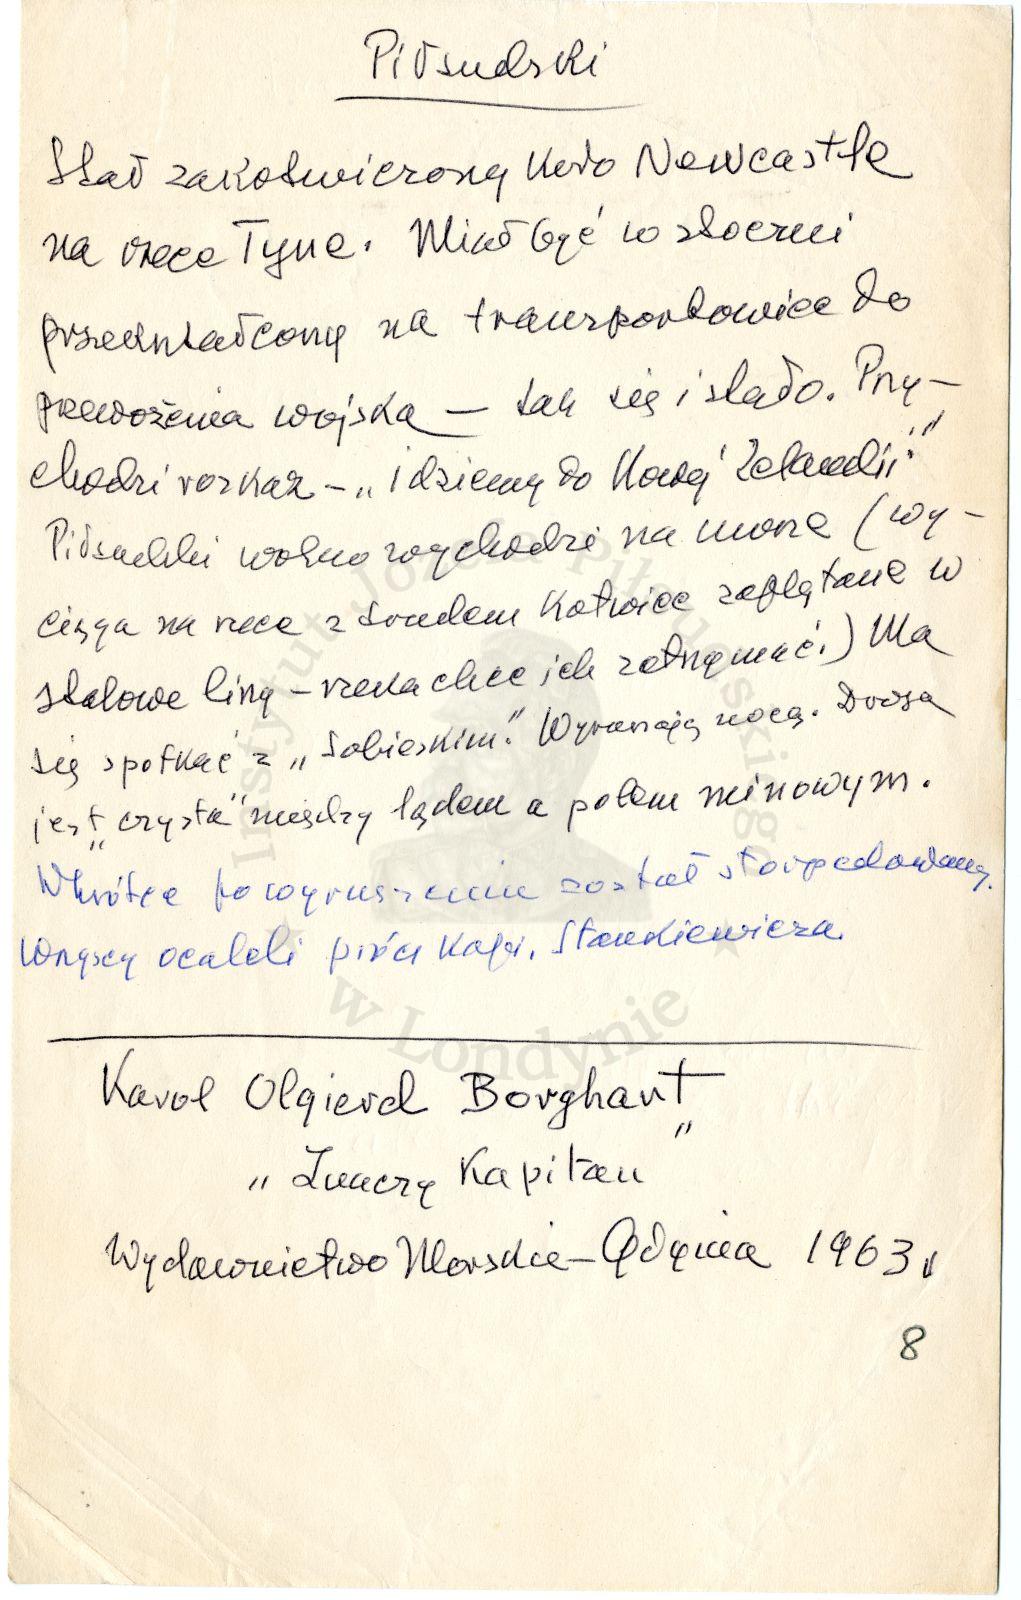 Piłsudski
Stał zakotwiczony koło Newcastle
na rzece Tyne. Miał być w stoczni
przekształcony na transportowiec do
przewożenia wojska – tak się i stało. Przy-
chodzi rozkaz – „idziemy do Nowej Zelandii."
Piłsudski wolno wychodzi na morze (wy-
ciąga na rzece z trudem kotwice zaplątane w
stalowe liny – rzeka chce ich zatrzymać.) Ma
się spotkać z „Sobieskim." Wyruszają nocą. Droga
jest „czysta" między lądem a polem minowym.
Wkrótce po wyruszeniu został storpedowany.
Wszyscy ocaleli prócz Kapt. Stankiewicza
Karol Olgierd Borghart
„Znaczy Kapitan"
Wydawnictwo Morskie – Gdynia 1963 r
8
Instytut Józefa Piłsudskiego
w Londynie